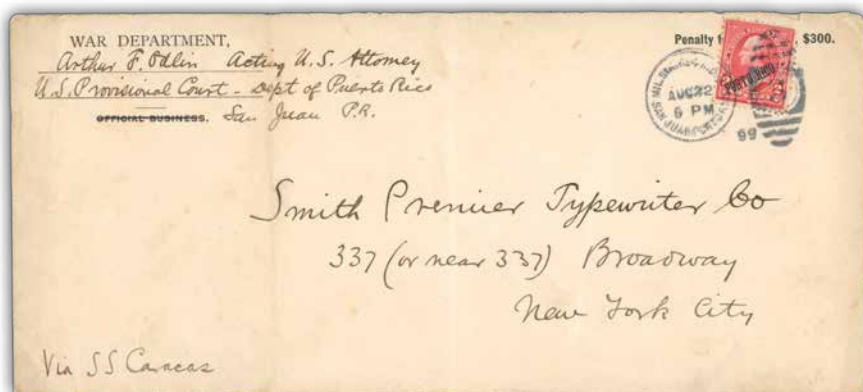 WAR DEPARTMENT,
Arthur F. Odlin Acting U.S. Attorney
U.S. Provisional Court - Dept of Puerto Rico
OFFICIAL BUSINESS. San Juan P.R.
Penalty $300.
PORTO RICO
AUG 22
6 PM
99
Smith Premier Typewriter Co
337 (or near 337) Broadway
New York City
Via SS Caracas